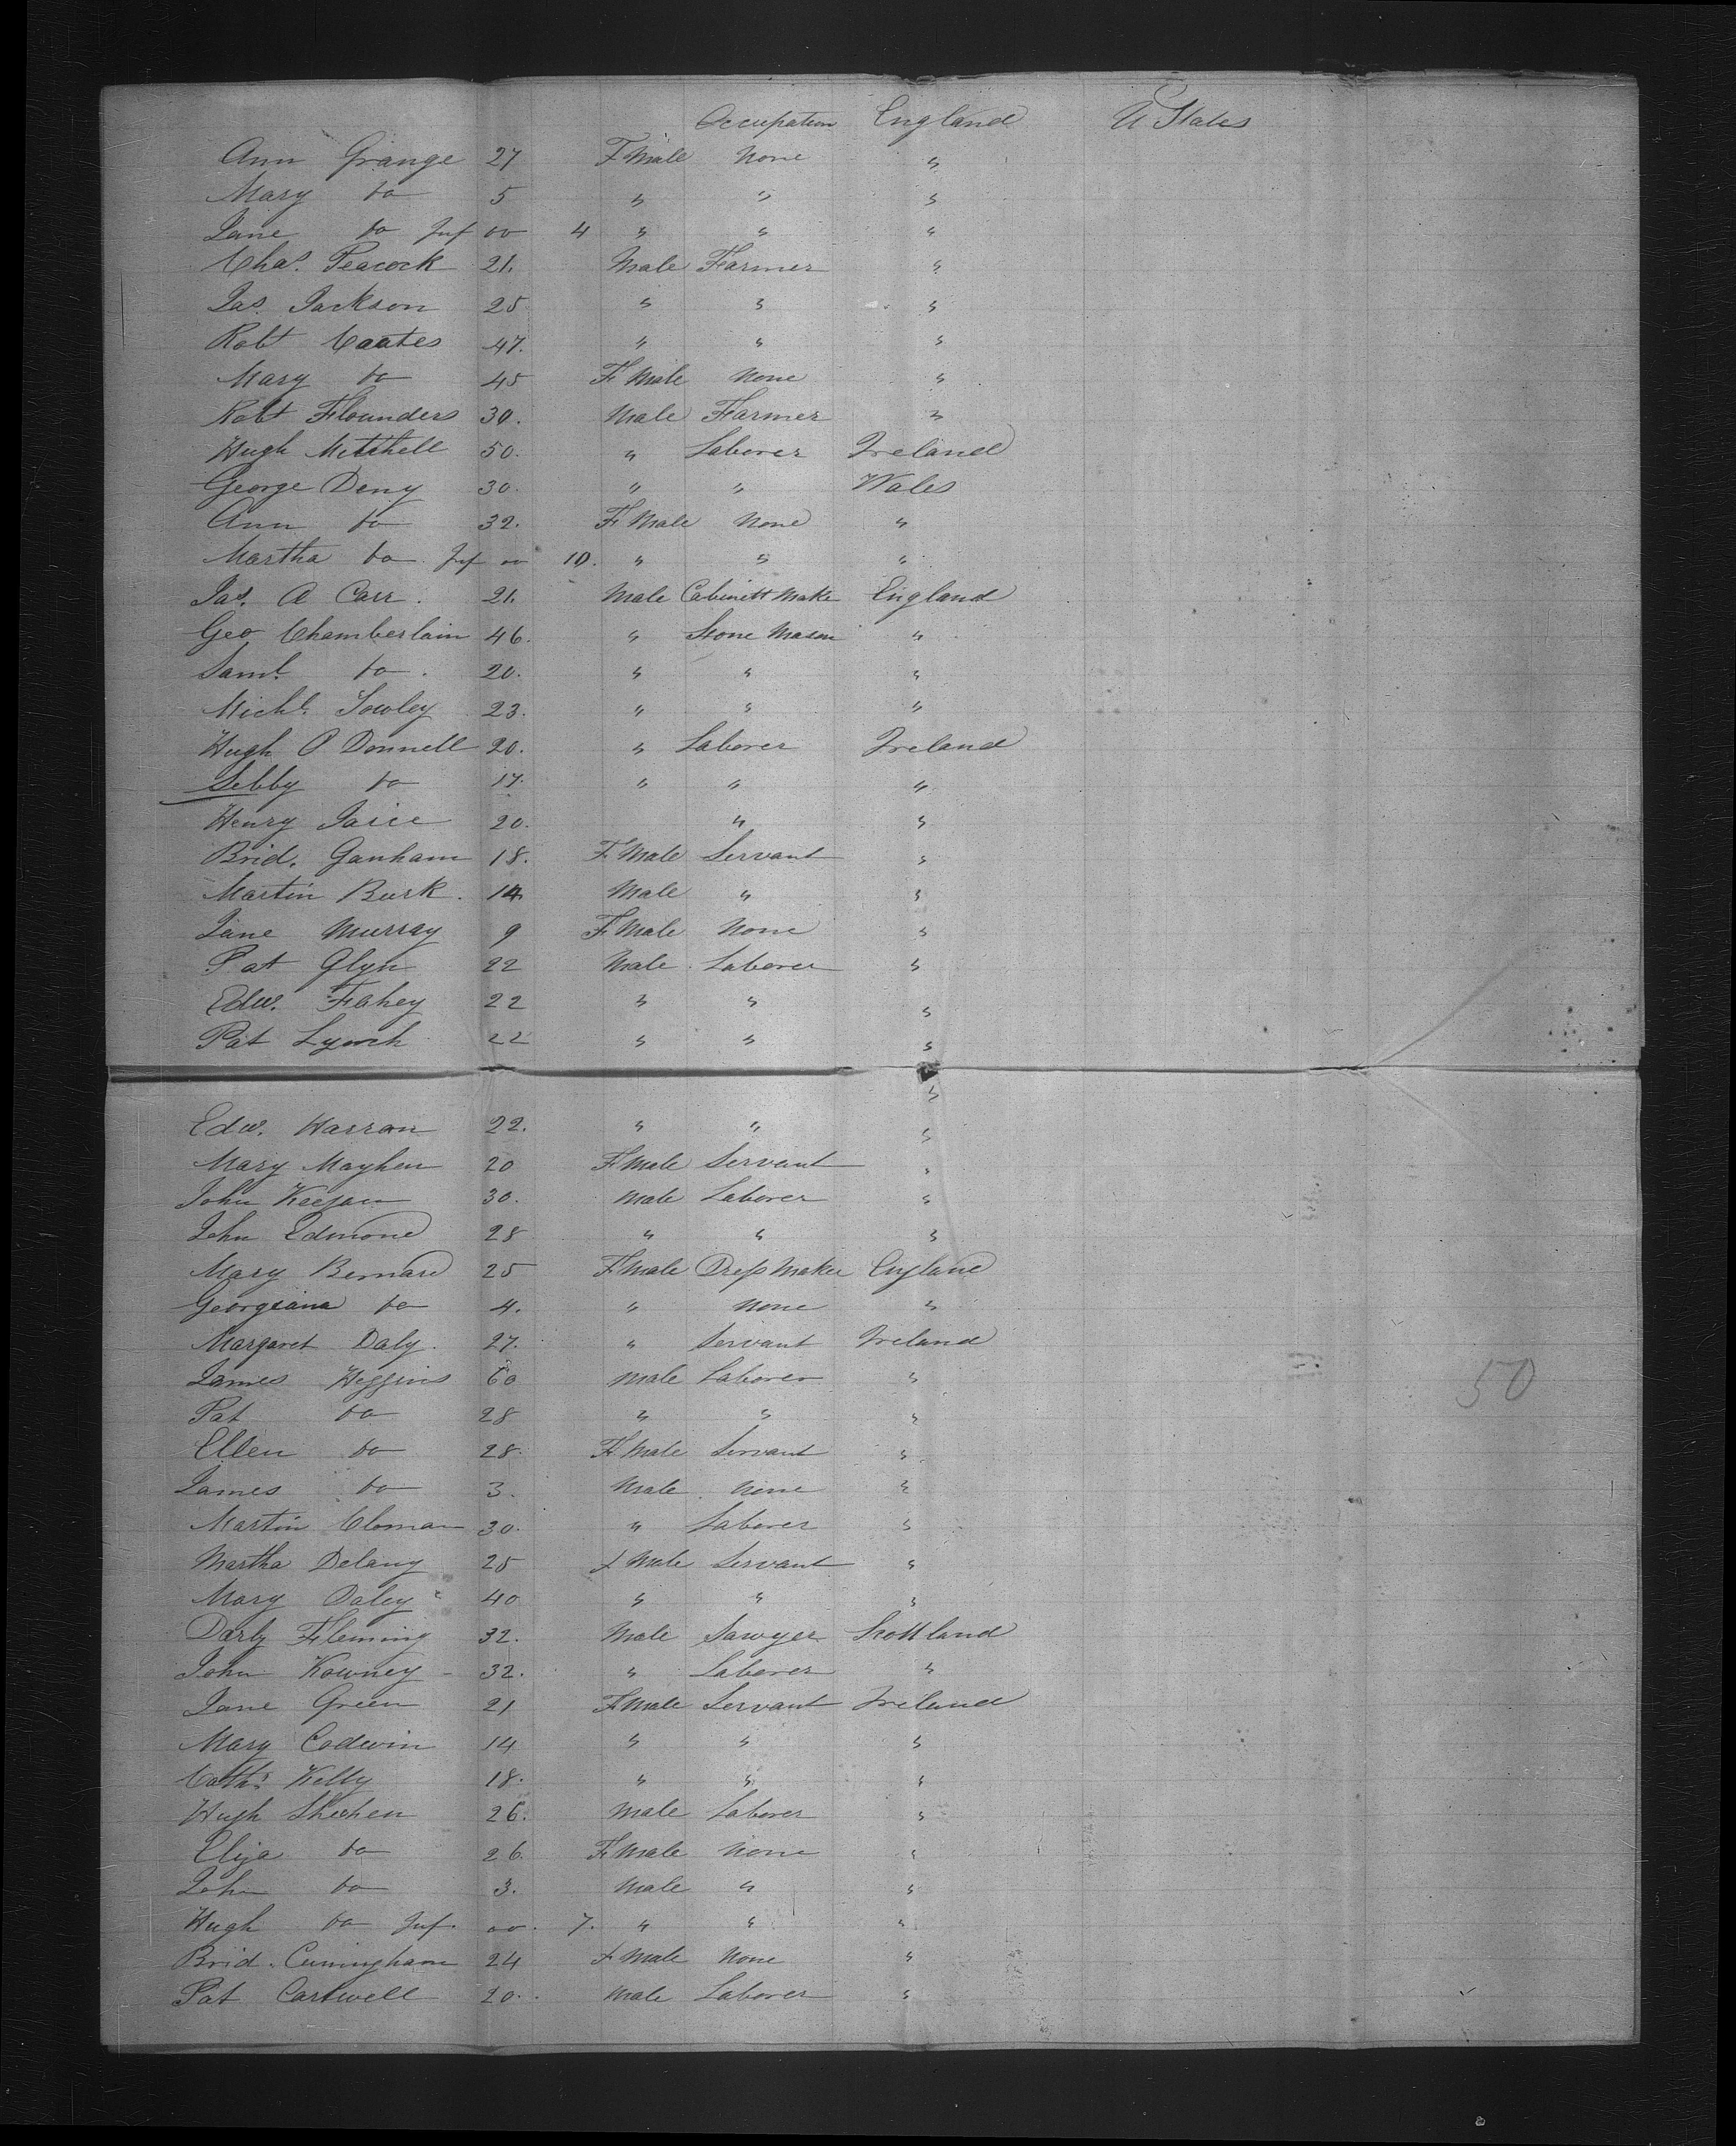 Occupation England U States
Ann Grange 27 F Male None "
Mary do 5 " " "
Jane do Inf 00 4 " " "
Chas. Peacock 21. Male Farmer "
Jas. Jackson 25 " " "
Robt Coates 47. " " "
Mary do 45 F Male None "
Robt Flounders 30. Male Farmer "
Hugh Mitchell 50. " Laborer Ireland
George Deny 30. " " Wales
Ann do 32. F Male None "
Martha do Inf 00 10. " " "
Jas. A Carr. 21. Male Cabinett Make England
Geo Chamberlain 46. " Stone Mason "
Saml. do. 20. " " "
Michl. Towley 23. " " "
Hugh O Donnell 20. " Laborer Ireland
Sebby do 17. " " "
Henry 20. " "
Brid. Ganham 18. F Male Servant "
Martin Burk. 14 Male " "
Jane Murray 9 F Male None "
Pat Glyn 22 Male Laborer "
Edw. Fahey 22 " " "
Pat Lynch 22 " " "
"
Edw. Warran 22. " " "
Mary Mayhen 20 F Male Servant "
John Keegan 30. Male Laborer "
John Edmond 28 " " "
Mary Bernard 25 F Male Dress Maker England
Georgeana do 4. " None "
Margaret Daly. 27. " Servant Ireland
James Higgins 60 Male Laborer "
Pat do 28 " " "
Ellen do 28. F Male Servant "
James do 3. Male None "
Martin Cloman 30. " Laborer "
Martha Delany 25 F Male Servant "
Mary Daley 40 " " "
Darly Fleming 32. Male Sawyer Scottland
John Kowney 32. " Laborer "
Jane Green 21 F Male Servant Ireland
Mary Codwin 14 " " "
Cath. Kelly 18. " " "
Hugh Sheehen 26. Male Laborer "
Eliza do 26. F Male None "
John do 3. Male " "
Hugh do Inf. 00. 7. " " "
Brid. Cuningham 24 F Male None "
Pat Cartwell 20. Male Laborer "
50